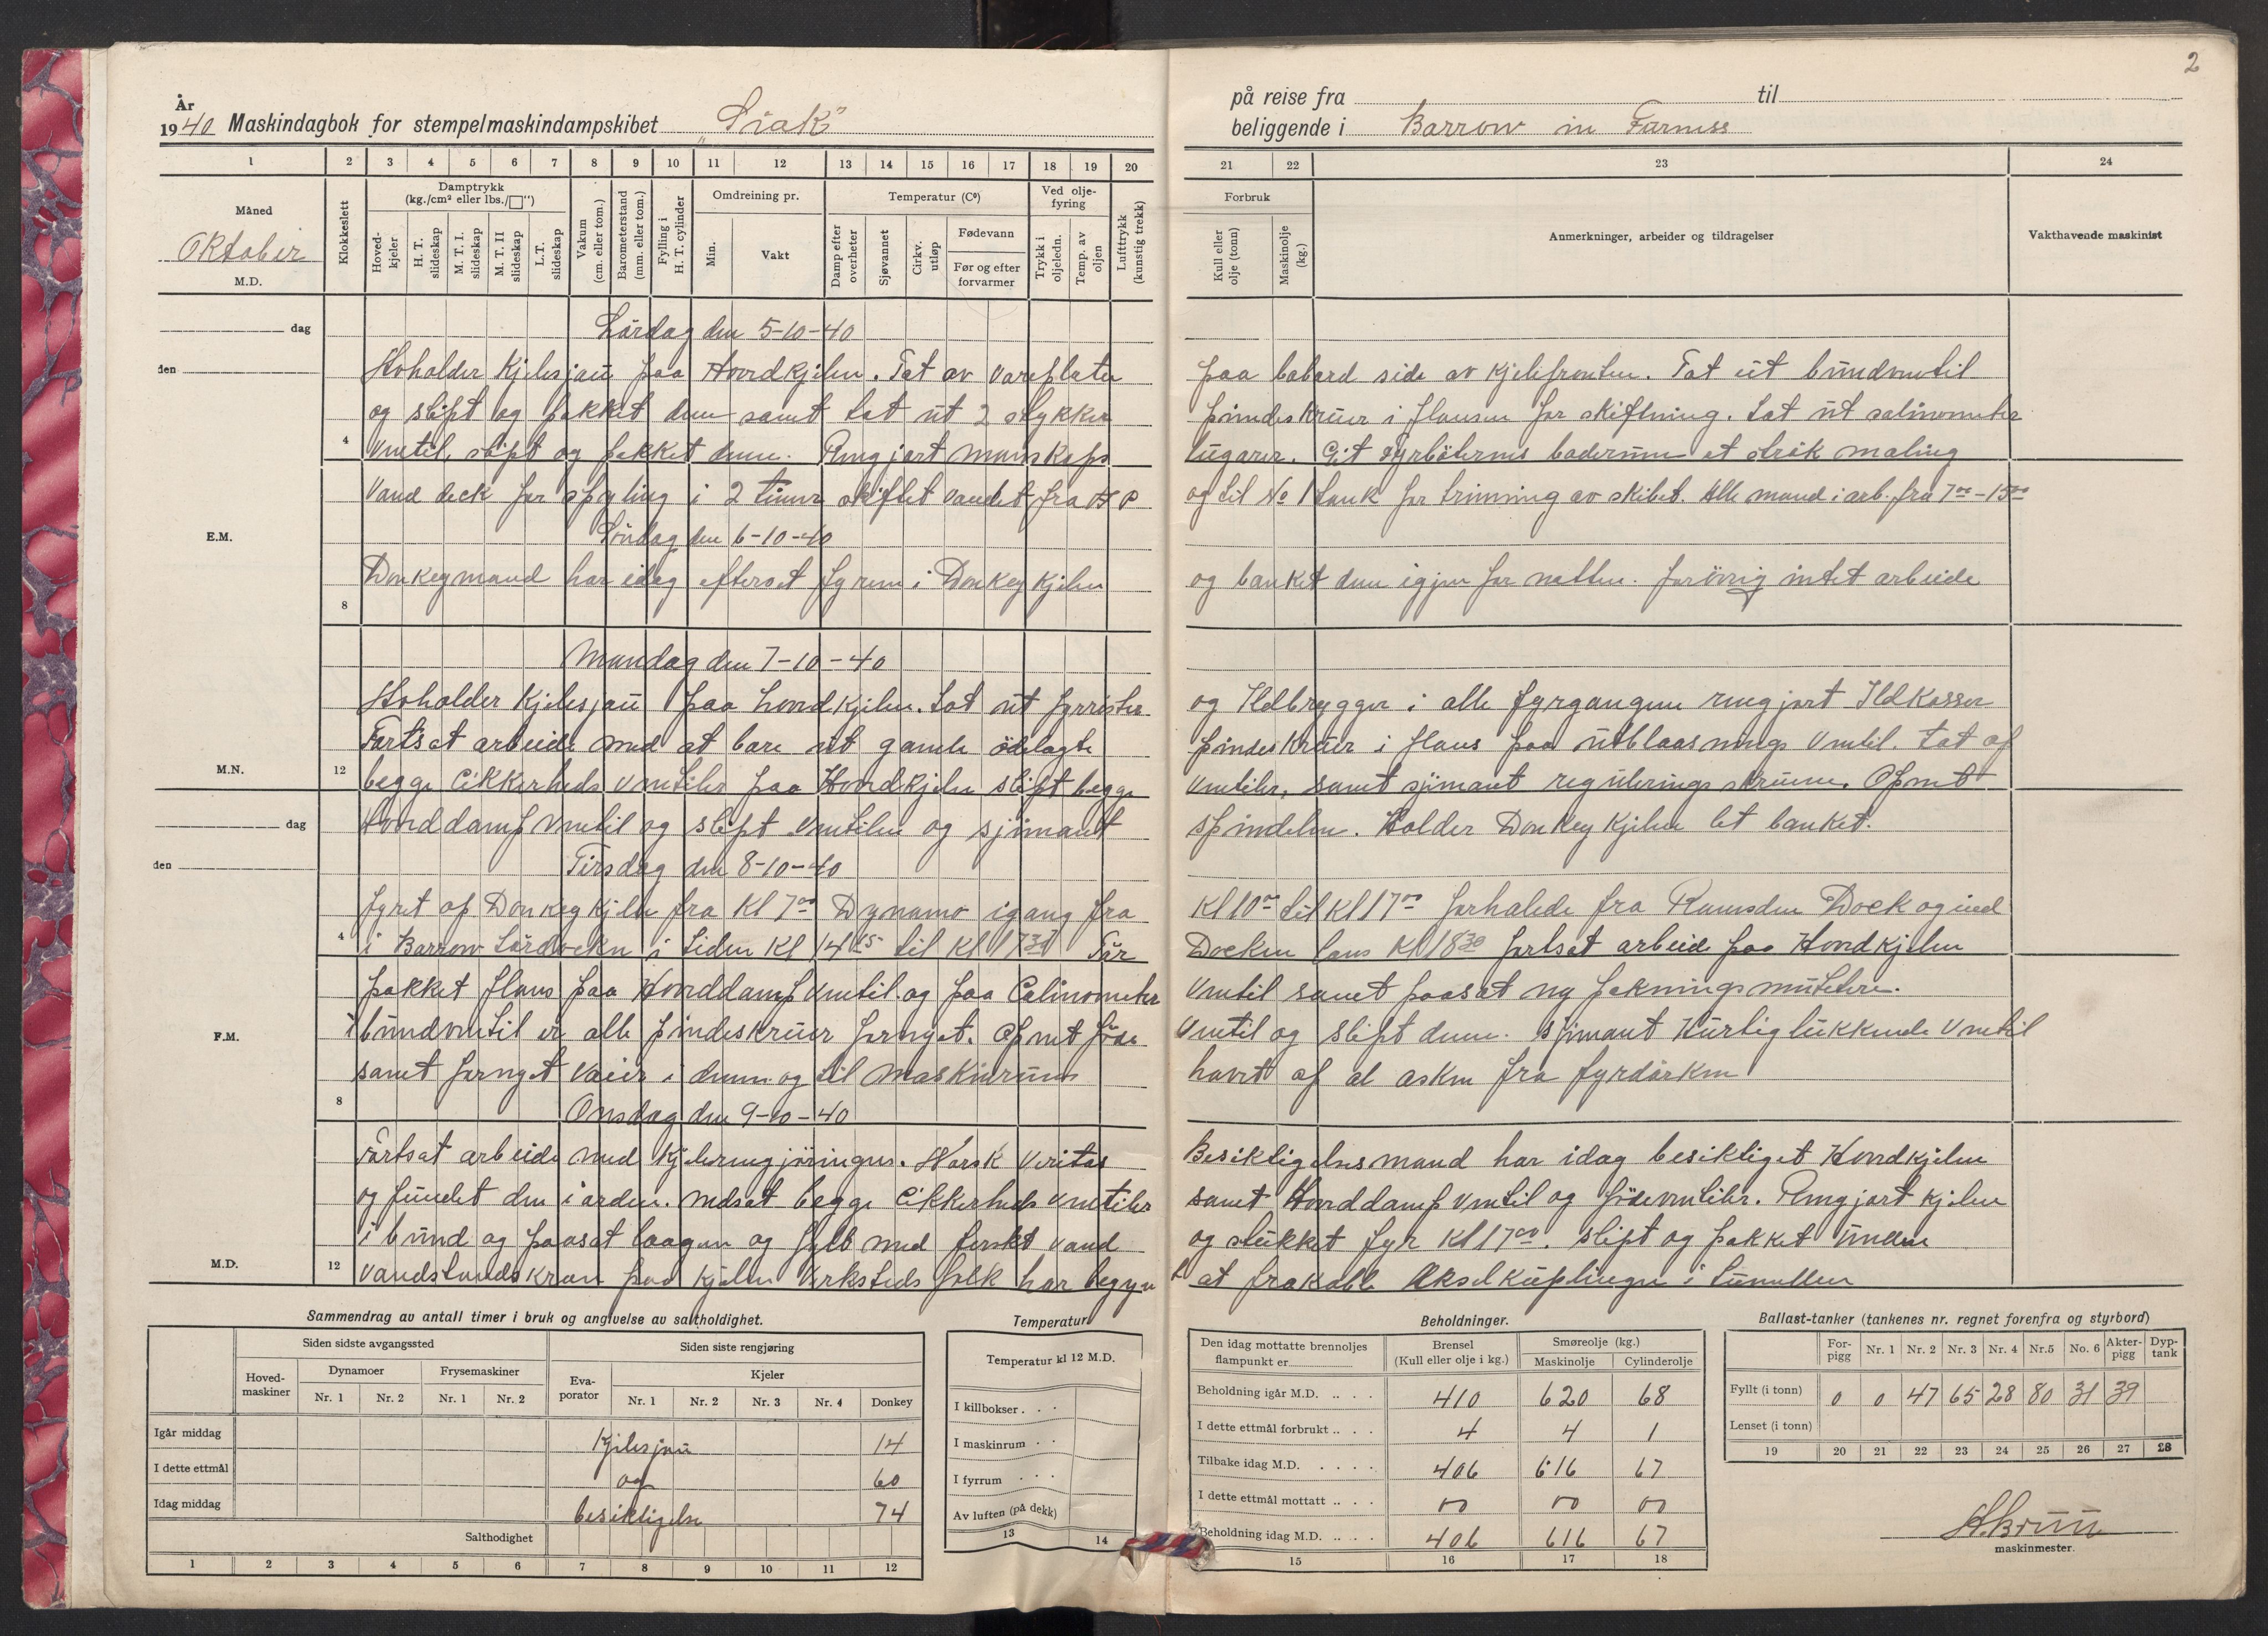 2
År
1940 Maskindagbok for stempelmaskindampskibet „Siak"
på reise fra til
beliggende i Barrow in Farness
1 2 3 4 5 6 7 8 9 10 11 12 13 14 15 16 17 18 19 20
21 22 23 24
Måned
Oktober
M.D.
Klokkeslett
Damptrykk
(kg./cm² eller lbs./□")
Hoved-
kjeler
H. T.
slideskap
M. T. I.
slideskap
M. T. II
slideskap
L.T.
slideskap
Vakum
(cm. eller tom.)
Barometerstand
(mm. eller tom.)
Fylling i
H. T. cylinder
Omdreining pr.
Min.
Vakt
Temperatur (C°)
Damp efter
overheter
Sjøvannet
Cirkv.
utløp
Fødevann
Før og efter
forvarmer
Ved olje-
fyring
Trykk i
oljeledn.
Temp. av
oljen
Lufttrykk
(kunstig trekk)
Forbruk
Kull eller
olje (tonn)
Maskinolje
(kg.)
Anmerkninger, arbeider og tildragelser
Vakthavende maskinist
dag
Lördag den 5-10-40
den
Avholder Kjelesjau paa Hovedkjelen. Tat av Vareplater paa babord side av kjelefronten. Tat ut bundventil
og slipt og pakket dem samt tat ut 2 stykker pindeskruer i flansen for skiftning. Tat ut salinometer
4 Ventil, slipt og pakket denne. Rengjort Manskaps lugarer. Git Fyrböternes baderum et strök maling
Vand deck for spyling i 2 timer skiftet vandet fra A P og til No 1 tank for trimning av skibet. Alle mand i arb. fra 7⁰⁰-15⁰⁰
E.M.
Söndag den 6-10-40
Donkeymand har idag efterset fyren i Donkey Kjelen og banket den igjen for natten. forövrig intet arbeide
8
Mandag den 7-10-40
Avholder Kjelesjau paa hovedkjelen. tat ut fyrrister og Ildbrygger i alle fyrgangene rengjort Ildkasser
Fortsat arbeide med at bore ut gamle ödelagte pindeskruer i flans paa utblaasnings Ventil. tat af
M.N. 12 begge Cikkerheds ventiler paa Hovedkjelen slipt begge Ventiler, samt sjimant regulerings skruene. Opmt
dag Hoveddamp ventil og slipt Ventilen og sjimant spindelen. Holder Donkey Kjelen let banket.
den
Tirsdag den 8-10-40
fyret op Donkey Kjelen fra Kl 7⁰⁰ Dynamo igang fra Kl 10⁰⁰ til Kl 17⁰⁰ forhalede fra Ramsden Dock og ind
4 i Barrow Tördocken i tiden Kl 14¹⁵ til Kl 17³⁰ Tör Docken lans Kl 18³⁰ fortsat arbeide paa Hovedkjelen
pakket flans paa Hoveddamp ventil og paa Calinometer Ventil samt paasat ny paknings mutttere.
F.M. i bundventil er alle pindeskruer fornyet. Opmt föde Ventil og slipt denne. sjimant Hurtiglukkende Ventil
samt fornyet vaier i denne og til maskinrum havet af al asken fra fyrdörken
8
Onsdag den 9-10-40
Fortsat arbeide med kjelerengjöringen. Norsk Veritas Besiktigelsesmand har idag besiktiget Hovedkjelen
og fundet den i orden. nedsat begge Cikkerheds ventiler samt Hoveddamp Ventil og födeventiler. Rengjort kjelen
i bund og paasat laagen og fyldt med ferskt vand og stukket fyr Kl 17⁰⁰. slipt og pakket Undre
M.D. 12 Vandstandskran paa kjelen Verksteds folk har begyn t at frakoble Akselkuplingen i tunnellen
Sammendrag av antall timer i bruk og angivelse av saltholdighet.
Siden sidste avgangssted
Siden siste rengjøring
Hoved-
maskiner
Dynamoer
Frysemaskiner
Eva-
porator
Kjeler
Nr. 1 Nr. 2 Nr. 1 Nr. 2 Nr. 1 Nr. 2 Nr. 3 Nr. 4 Donkey
Igår middag Kjelesjau 14
I dette ettmål og 60
Idag middag besiktigelse 74
Salthodighet
1 2 3 4 5 6 7 8 9 10 11 12
Temperatur
Temperatur kl 12 M.D.
I killbokser . . .
I maskinrum . .
I fyrrum . . .
Av luften (på dekk)
13 14
Beholdninger.
Den idag mottatte brennoljes
flampunkt er
Brensel
(Kull eller olje i kg.)
Smøreolje (kg.)
Maskinolje Cylinderolje
Beholdning igår M.D. 410 620 68
I dette ettmål forbrukt 4 4 1
Tilbake idag M.D. 406 616 67
I dette ettmål mottatt 00 00 00
Beholdning idag M.D. 406 616 67
15 16 17 18
Ballast-tanker (tankenes nr. regnet forenfra og styrbord)
For-
pigg
Nr. 1 Nr. 2 Nr. 3 Nr. 4 Nr.5 No. 6
Akter-
pigg
Dyp-
tank
Fyllt (i tonn) 0 0 47 65 28 80 31 39
Lenset (i tonn)
19 20 21 22 23 24 25 26 27 28
A. Bruu
maskinmester.